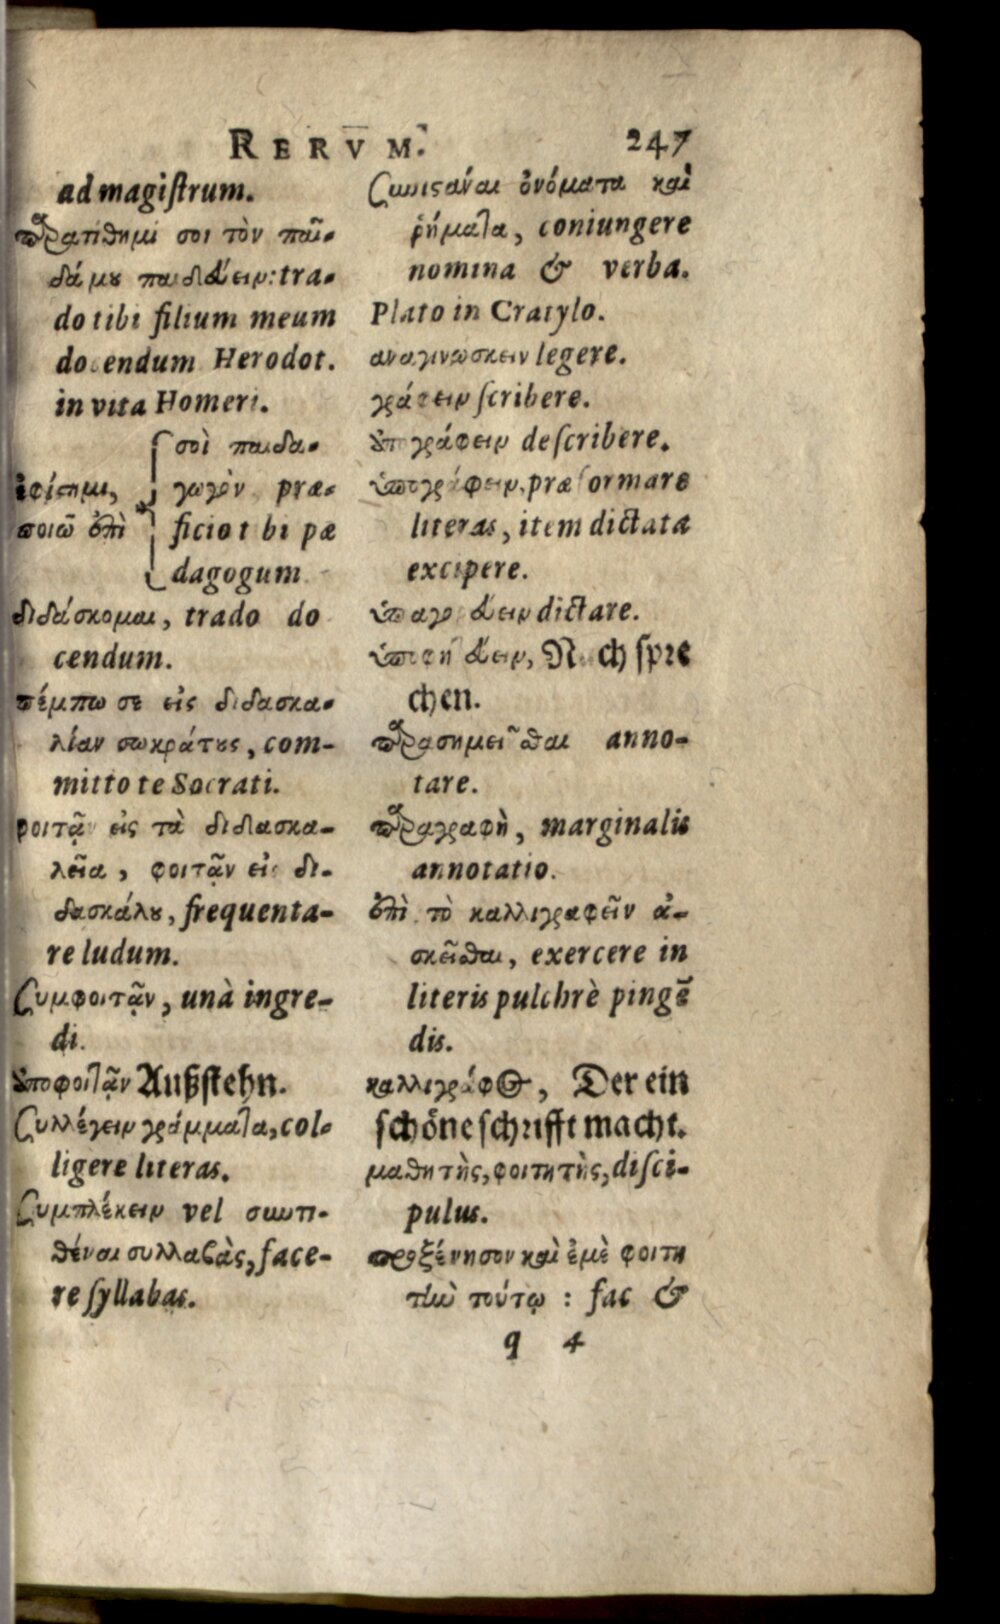 RERVM. 247
ad magistrum.
παρατίθημί σοι τὸν παῖ-
δά μου παιδεύειν: tra-
do tibi filium meum
docendum Herodot.
in vita Homeri.
σοὶ παιδα-
ἐφίστημι, γωγὸν præ-
ποιῶ ἐπὶ ficio tibi pæ
dagogum
διδάσκομαι, trado do
cendum.
πέμπω σε εἰς διδασκα-
λίαν σωκράτους, com-
mitto te Socrati.
φοιτᾷν εἰς τὰ διδασκα-
λεῖα, φοιτᾷν εἰς δι-
δασκάλου, frequenta-
re ludum.
Συμφοιτᾷν, unà ingre-
di.
ὑποφοιτᾷν Außstehn.
Συλλέγειν γράμματα, col-
ligere literas.
Συμπλέκειν vel συντι-
θέναι συλλαβὰς, face-
re syllabas.
Συνιστάναι ὀνόματα καὶ
ῥήματα, coniungere
nomina & verba.
Plato in Cratylo.
αναγινωσκειν legere.
γράφειν scribere.
ὑπογράφειν describere.
ὑπογράφειν, præformare
literas, item dictata
excipere.
ὑπαγορεύειν dictare.
Nach spre
chen.
παρασημειοῦσθαι anno-
tare.
παραγραφὴ, marginalis
annotatio.
ἐπὶ τὸ καλλιγραφεῖν ἀ-
σκεῖσθαι, exercere in
literis pulchrè pingẽ
dis.
καλλιγράφος, Der ein
schöne schrifft macht.
μαθητὴς, φοιτητὴς, disci-
pulus.
προξένησον καὶ ἐμὲ φοιτη
τὴν τούτῳ : fac &
q 4